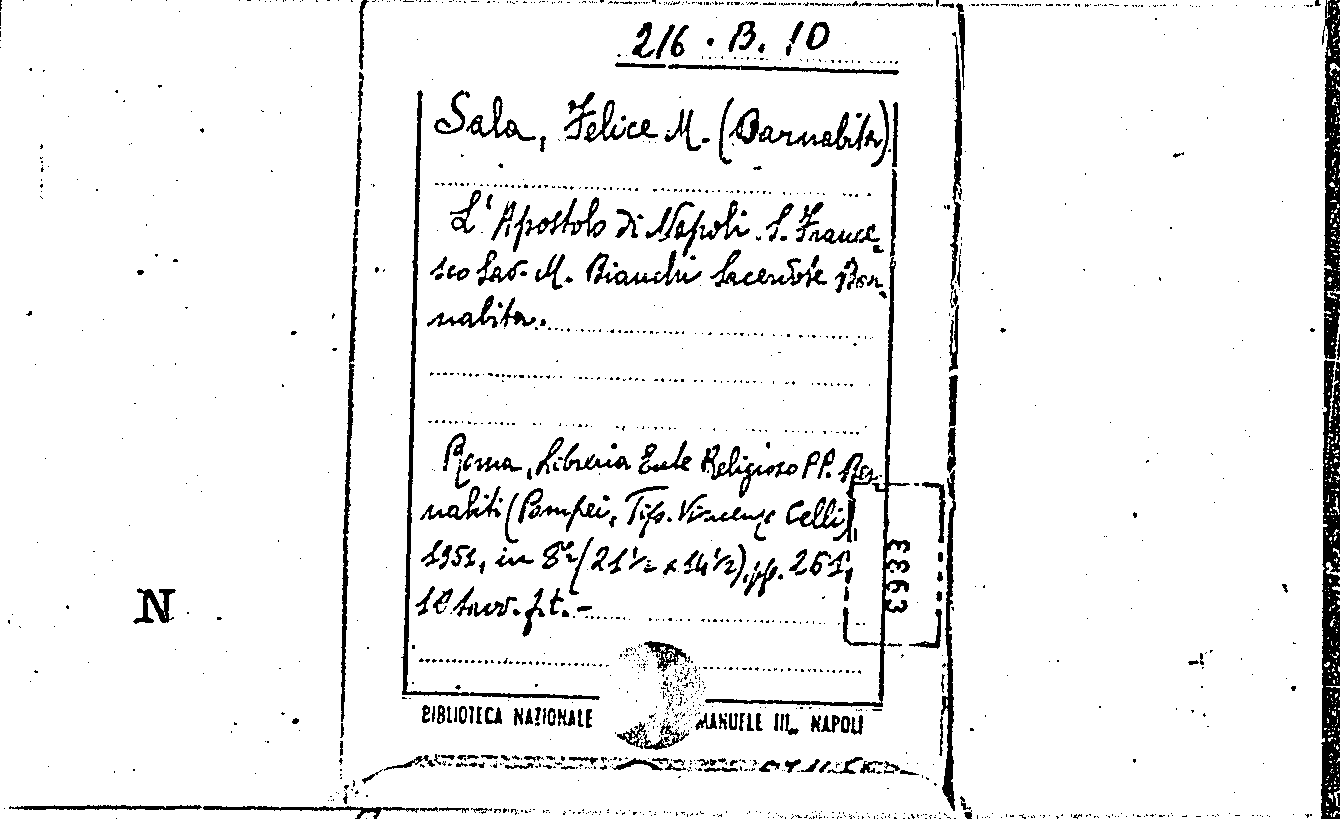 216 . B. 10
Sala, Felice M. (Barnabita)
L'Apostolo di Napoli. S. France-
sco Sav. M. Bianchi Sacerdote Bar-
nabita.
Roma, Libreria Ente Religioso PP. Bar-
nabiti (Pompei, Tip. Vincenzo Celli)
1951, in 8º (21½ x 14½), pp. 261,
10 tavv. f. t. -
3933
N
BIBLIOTECA NAZIONALE MANUELE III NAPOLI